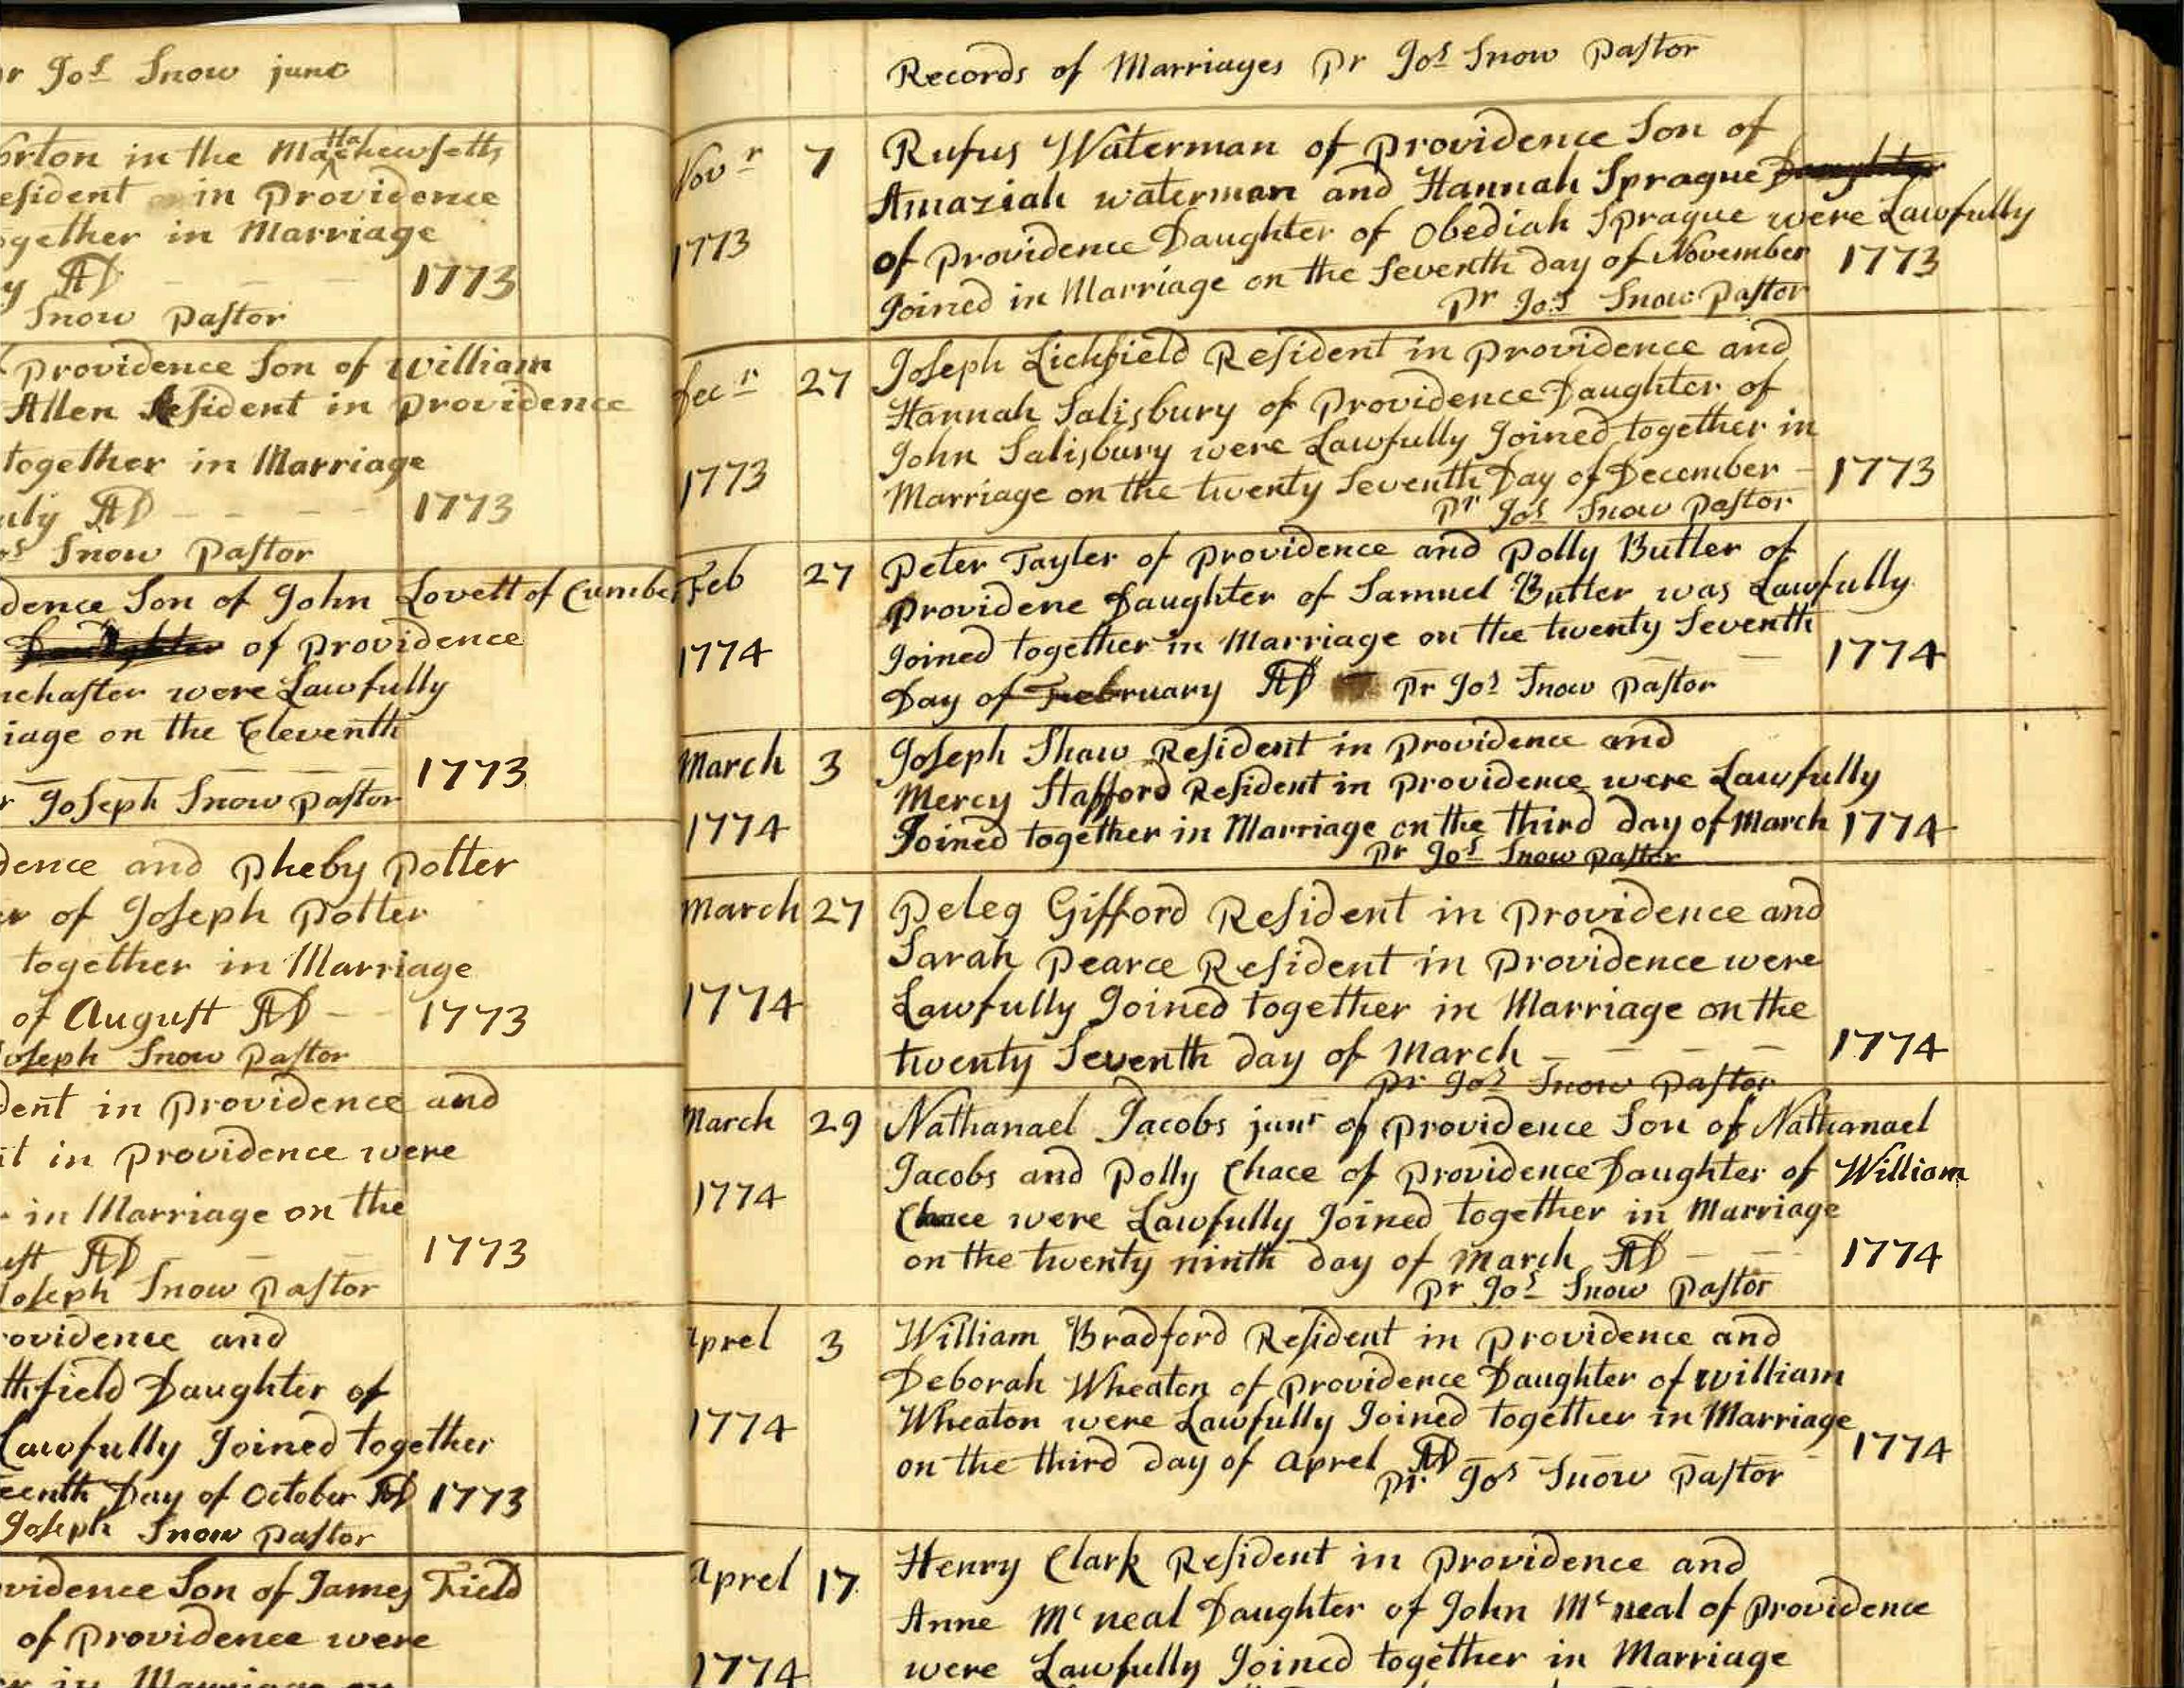 r Jos Snow junr
orton in the Mathachewsetts
esident in Providence
ogether in Marriage
y AD - - - 1773
Snow Pastor
Providence Son of William
Allen Resident in Providence
together in Marriage
uly AD - - - - 1773
os Snow Pastor
dence Son of John Lovett of Cumbe
Daughter of Providence
nchaster were Lawfully
iage on the Eleventh
1773
r Joseph Snow Pastor
dence and Pheby Potter
er of Joseph Potter
together in Marriage
of August AD - - 1773
Joseph Snow Pastor
dent in Providence and
nt in Providence were
r in Marriage on the
ust AD - - 1773
Joseph Snow Pastor
rovidence and
thfield Daughter of
Lawfully Joined together
eenth Day of October AD 1773
Joseph Snow Pastor
vidence Son of James Field
of Providence were
er in Marriage on
Records of Marriages Pr Jos Snow Pastor
Novr 7 Rufus Waterman of Providence Son of
Amaziah waterman and Hannah Sprague Daughter
1773 of Providence Daughter of Obediah Sprague were Lawfully
Joined in Marriage on the Seventh day of November 1773
Pr Jos Snow Pastor
Decr 27 Joseph Lichfield Resident in Providence and
Hannah Salisbury of Providence Daughter of
John Salisbury were Lawfully Joined together in
1773 Marriage on the twenty Seventh Day of December - 1773
Pr Jos Snow Pastor
Feb 27 Peter Tayler of Providence and Polly Butler of
Providene Daughter of Samuel Butler was Lawfully
1774 Joined together in Marriage on the twenty Seventh
Day of February AD Pr Jos Snow Pastor - - 1774
March 3 Joseph Shaw Resident in Providence and
Mercy Stafford Resident in Providence were Lawfully
1774 Joined together in Marriage on the third day of March 1774
Pr Jos Snow Pastor
March 27 Peleg Gifford Resident in Providence and
Sarah Pearce Resident in Providence were
1774 Lawfully Joined together in Marriage on the
twenty Seventh day of March - - - - 1774
Pr Jos Snow Pastor
March 29 Nathanael Jacobs junr of Providence Son of Nathanael
Jacobs and Polly Chace of Providence Daughter of William
1774 Chace were Lawfully Joined together in Marriage
on the twenty ninth day of March AD - - 1774
Pr Jos Snow Pastor
Aprel 3 William Bradford Resident in Providence and
Deborah Wheaton of Providence Daughter of William
1774 Wheaton were Lawfully Joined together in Marriage
on the third day of Aprel AD - - - - 1774
Pr Jos Snow Pastor
Aprel 17 Henry Clark Resident in Providence and
Anne Mc neal Daughter of John Mc neal of Providence
1774 were Lawfully Joined together in Marriage